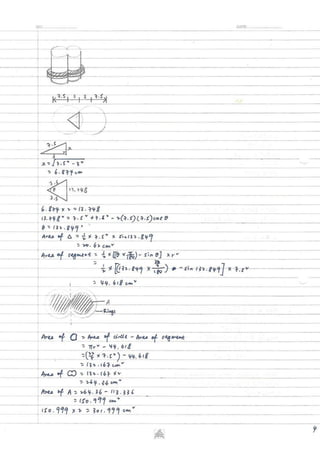 7.5 3 3 7.5
7.5
x
3
x = √7.5² - 3²
= 6.874 cm
7.5
θ
13.748
7.5
6.874 x 2 = 13.748
13.748² = 7.5² + 7.5² - 2(7.5)(7.5)cos θ
θ = 132.849°
Area of △ = ½ x 7.5² x sin 132.849
= 20.62 cm²
Area of segment = ½ x [θ x π/180) - sin θ] x r²
= ½ x [(132.849 x 22/7/180) - sin 132.849] x 7.5²
= 44.618 cm²
A
Rings
Area of = Area of circle - Area of segment
= πr² - 44.618
= (22/7 x 7.5²) - 44.618
= 132.167 cm²
Area of = 132.167 x 2
= 264.66 cm²
Area of A = 264.36 - 113.336
= 150.999 cm²
150.999 x 2 = 301.999 cm²
9